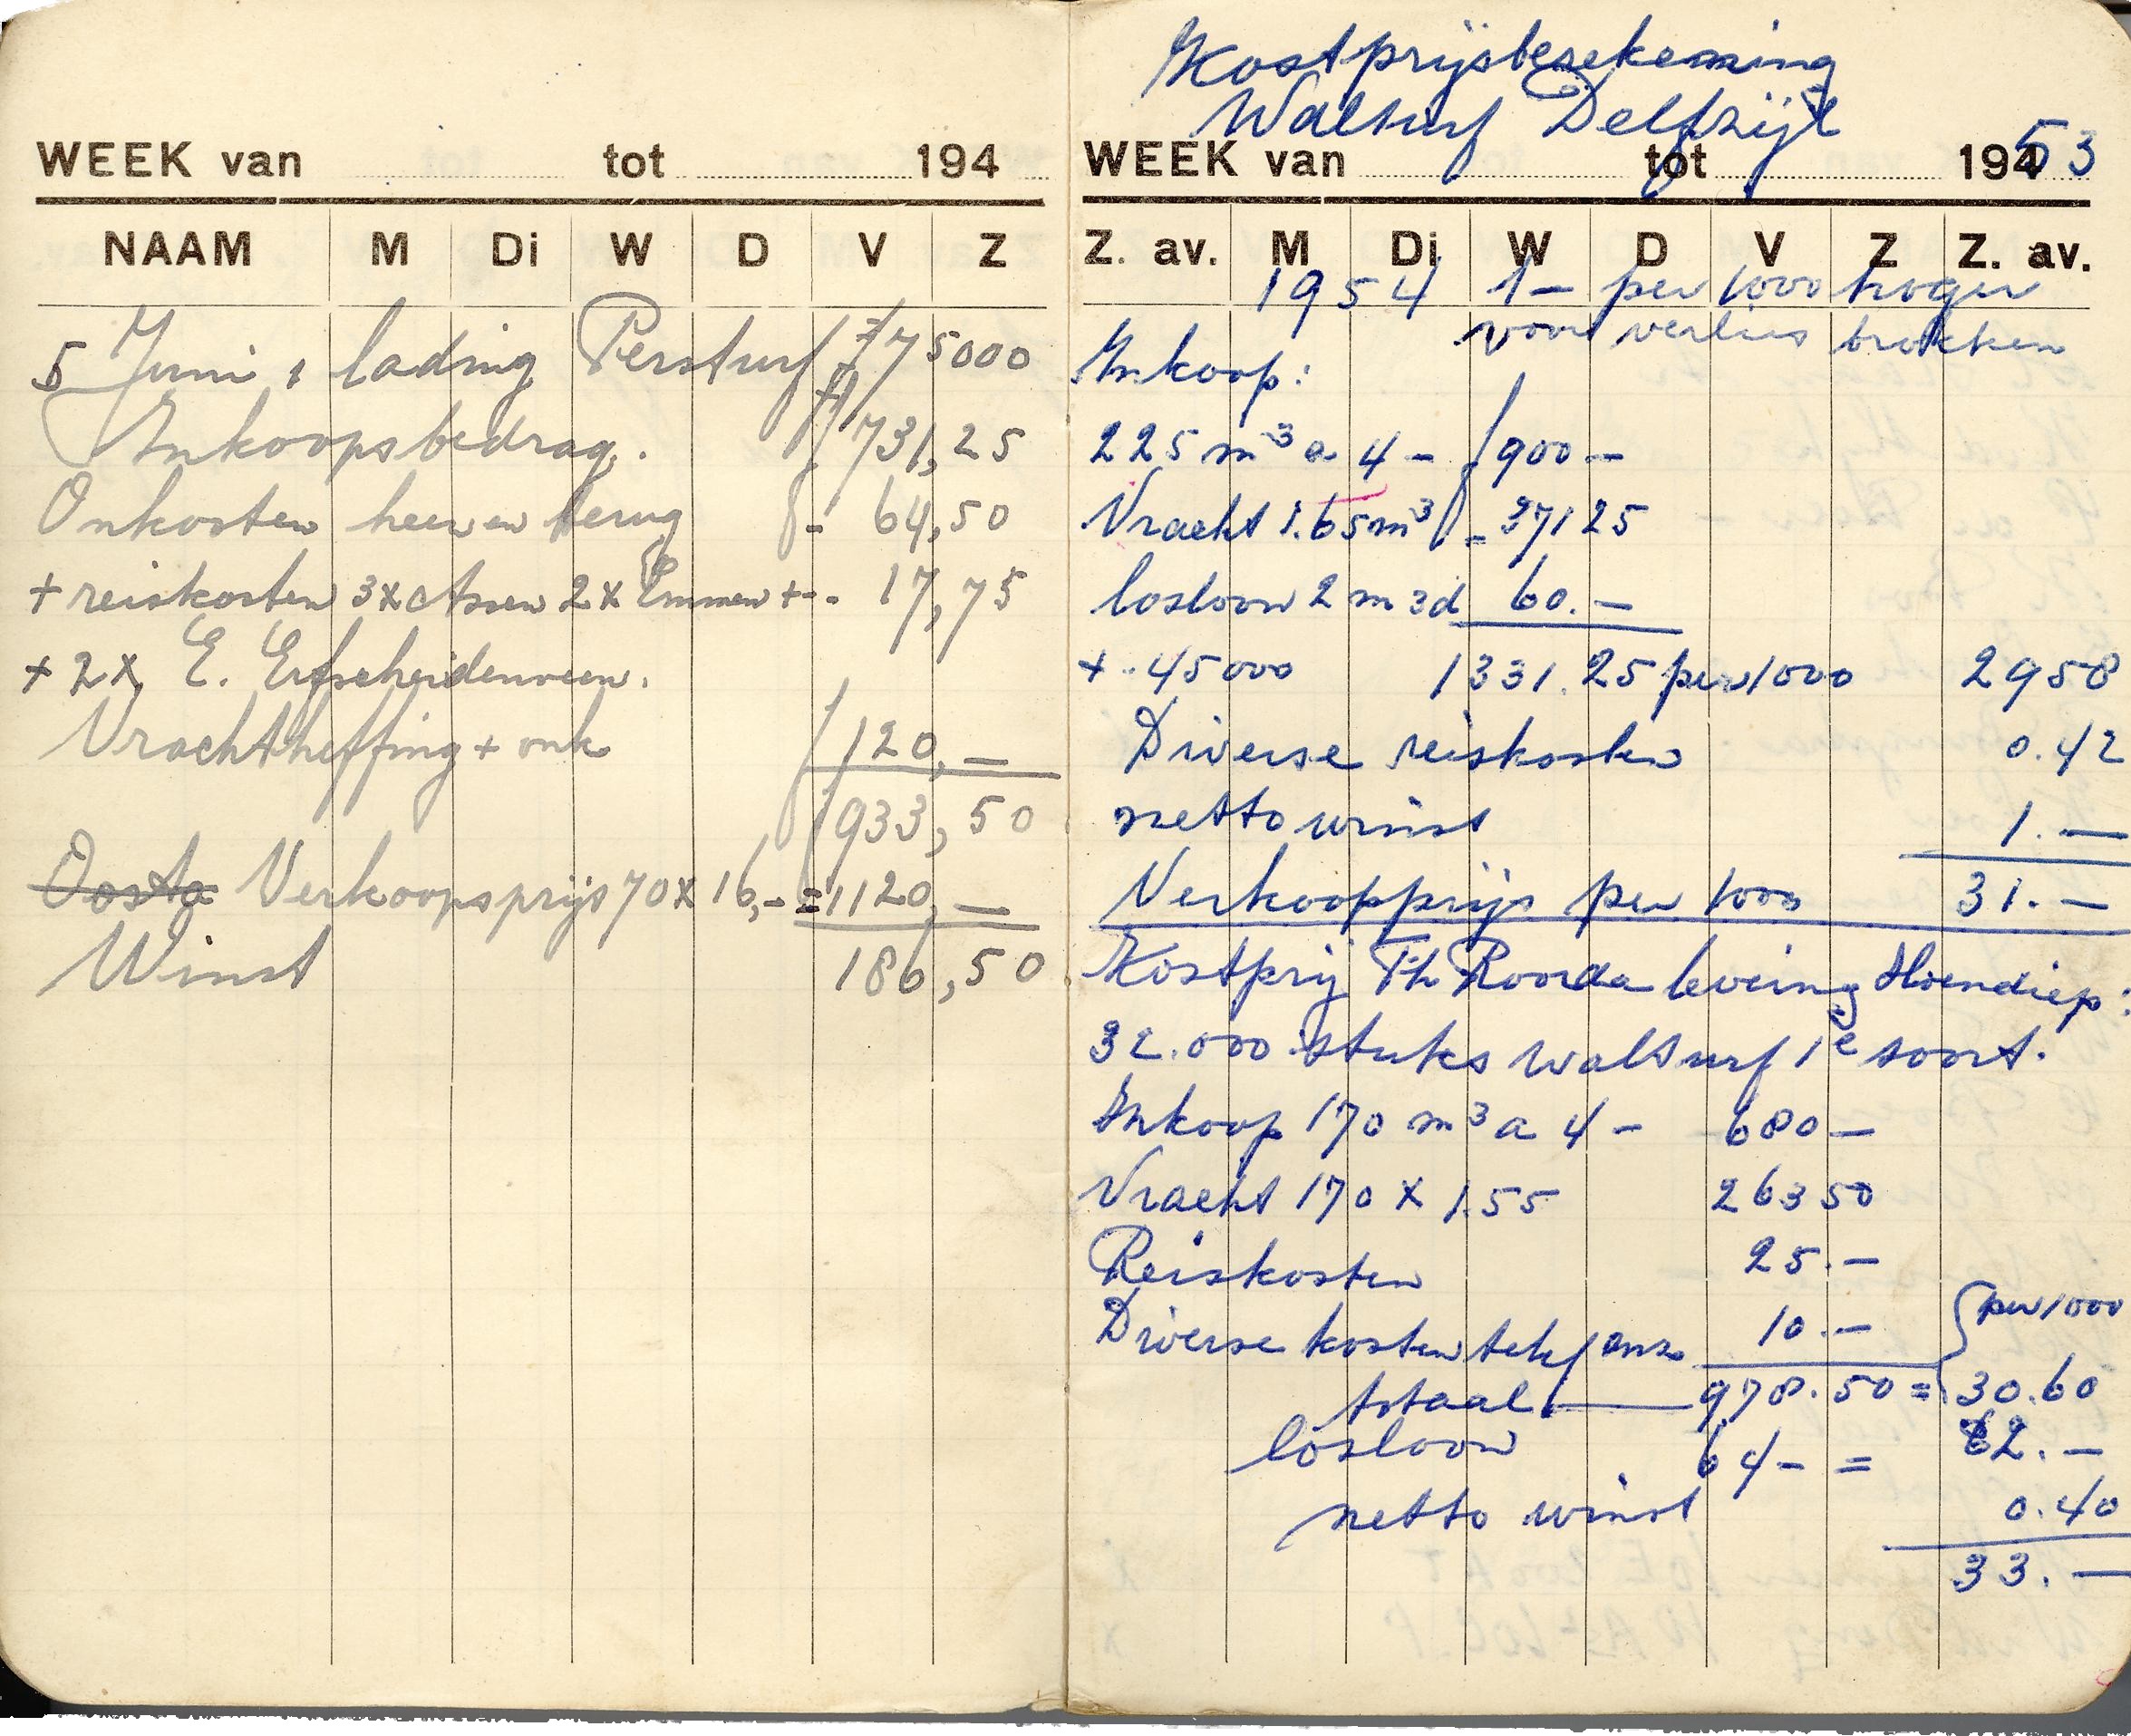 WEEK van tot 194
NAAM M Di W D V Z
5 Juni 1 lading Persturf ± 75000
Inkoopsbedrag. f 731,25
Onkosten heen en terug f - 64,50
+ reiskosten 3x Assen 2x Emmen + - 17,75
+ 2x E. Erfscheidenveen.
Vrachtheffing + onk f 120,—
f 933,50
Oosta Verkoopsprijs 70 x 16,- = 1120,—
Winst 186,50
Kostprijsberekening
Walturf Delfzijl
WEEK van tot 194 53
Z. av. M Di W D V Z Z. av.
1954 1— per 1000 hoger
voor verlies brokken
Inkoop:
225 m³ a 4 - f 900 —
Vracht 1.65 m³ f - 371 25
losloon 2 m 3d 60.—
+ - 45000 1331.25 per 1000 2958
Diverse reiskosten 0.42
netto winst 1.—
Verkoopprijs per 1000 31.—
Kostprij Th Roorda levering Hoendiep:
32.000 stuks walturf 1e soort.
Inkoop 170 m³ a 4 - 680 —
Vracht 170 x 1.55 263 50
Reiskosten 25.—
Diverse kosten telef enz 10.— per 1000
totaal — 978.50 = 30.60
losloon 64 - = 2.—
netto winst 0.40
33.—